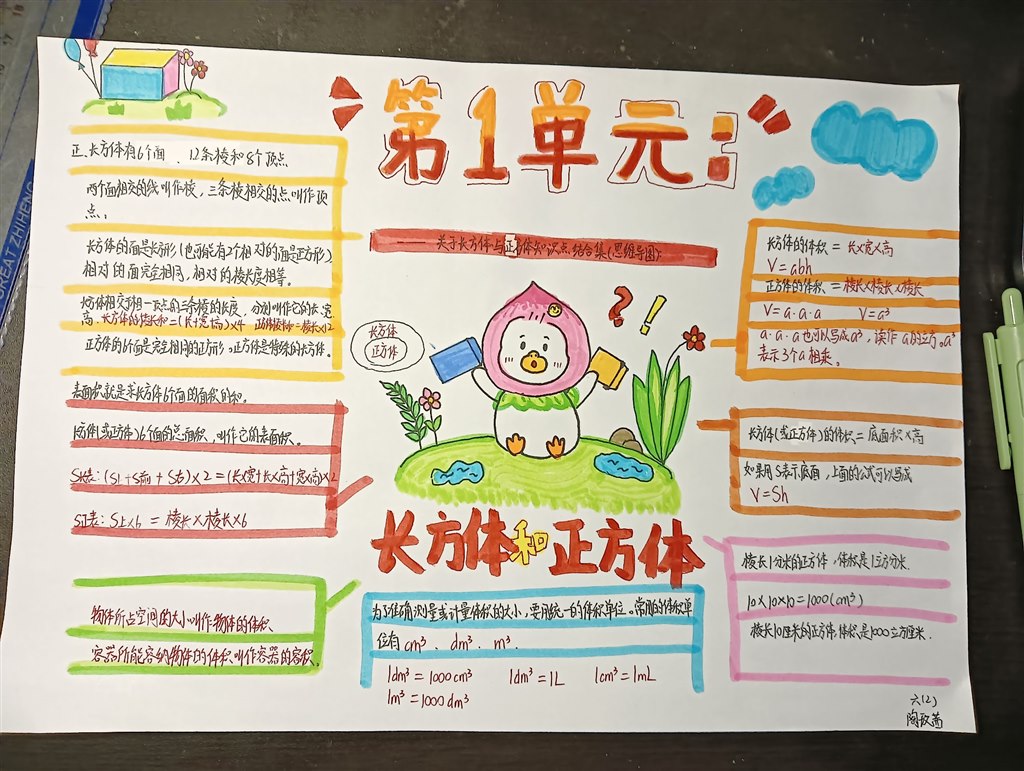 第1单元:
关于长方体与正方体知识点结合集(思维导图):
正、长方体有6个面、12条棱和8个顶点
两个面相交的线叫作棱，三条棱相交的点叫作顶
点。
长方体的面是长方形(也可能有2个相对的面是正方形)
相对的面完全相同，相对的棱长度相等。
长方体相交于同一顶点的三条棱的长度，分别叫作它的长、宽、
高。长方体的棱长和=(长+宽+高)×4 正方体棱长和=棱长×12
正方体的6个面是完全相同的正方形。正方体是特殊的长方体。
表面积就是求长方体6个面的面积的和。
长方体(或正方体)6个面的总面积，叫作它的表面积。
S长表:(S上+S前+S右)×2=(长×宽+长×高+宽×高)×2
S正表:S上×6=棱长×棱长×6
物体所占空间的大小叫作物体的体积
容器所能容纳物体的体积叫作容器的容积。
长方体
正方体
?!
长方体和正方体
为了准确测量或计量体积的大小，要用统一的体积单位。常用的体积单
位有cm³、dm³、m³.
1dm³=1000cm³ 1dm³=1L 1cm³=1mL
1m³=1000dm³
长方体的体积=长×宽×高
V=abh
正方体的体积=棱长×棱长×棱长
V=a·a·a V=a³
a·a·a也可以写成a³，读作a的立方。a³
表示3个a相乘。
长方体(或正方体)的体积=底面积×高
如果用S表示底面，上面的公式可以写成
V=Sh
棱长1分米的正方体，体积是1立方分米.
10×10×10=1000(cm³)
棱长10厘米的正方体,体积是1000立方厘米.
六(2)
GREAT ZHIHENG